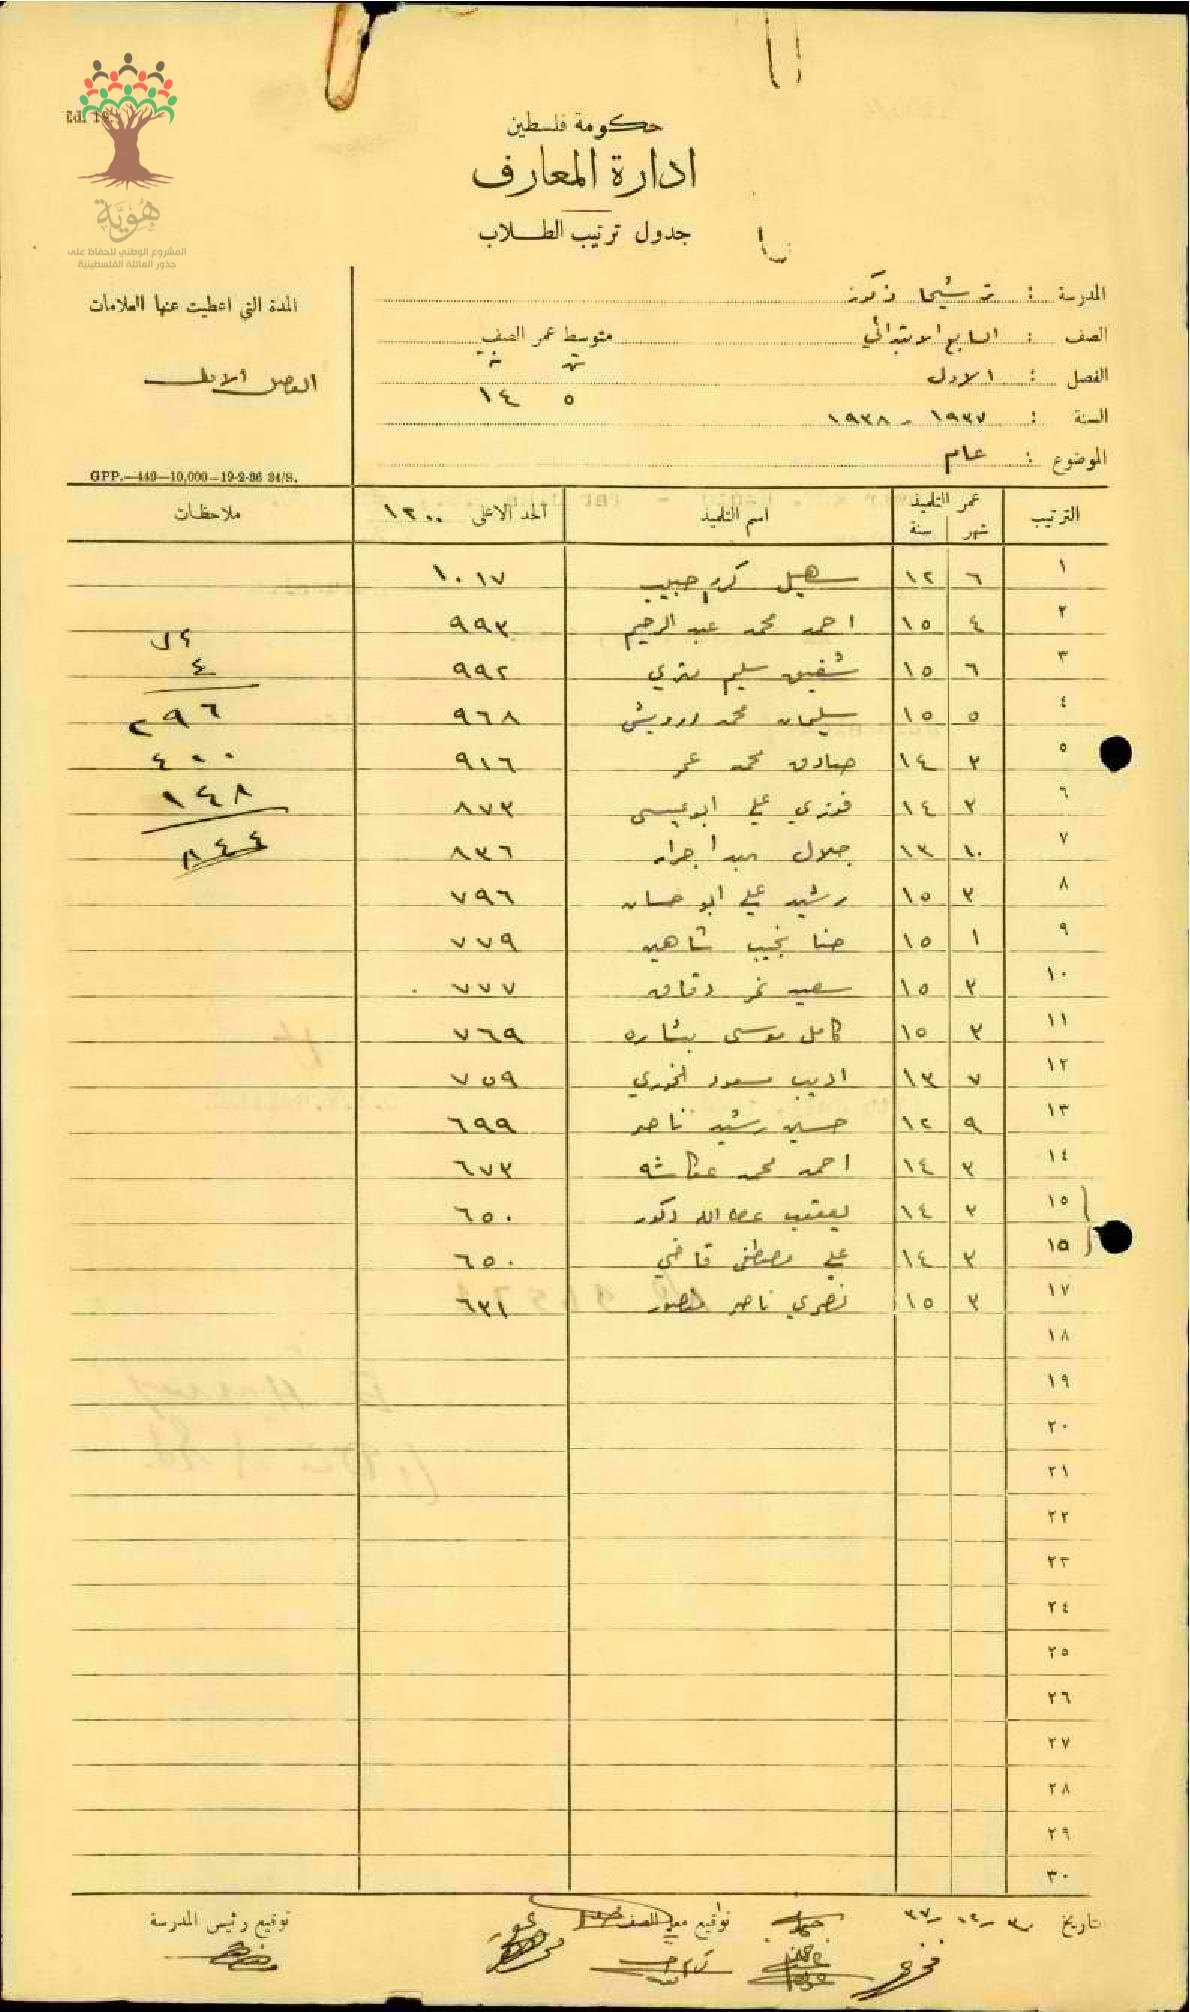 Ed. 1
هوية
المشروع الوطني للحفاظ على
جذور العائلة الفلسطينية
حكومة فلسطين
ادارة المعارف
جدول ترتيب الطلاب
المدرسة : ترشيحا ذكور
الصف : السابع الابتدائي متوسط عمر الصف
الفصل : الاول
٥ ١٤
السنة : ١٩٣٧ - ١٩٣٨
الموضوع : عام
المدة التي اعطيت عنها العلامات
الفصل الاول
GPP.—449—10,000—19-2-36 34/S.
الترتيب عمر التلميذ اسم التلميذ الحد الاعلى ١٣٠٠ ملاحظات
شهر سنة
١ ٦ ١٢ سهيل كرم حبيب ١٠١٧
٢ ٤ ١٥ احمد محمد عبد الرحيم ٩٩٣
٣ ٦ ١٥ شفيق سليم متري ٩٩٢ ٤
٤ ٥ ١٥ سليمان محمد درويش ٩٦٨ ٢٩٦
٥ ٣ ١٤ صادق محمد عمر ٩١٦ ٤٠٠
٦ ٣ ١٤ فوزي علي ابو عيسى ٨٧٣ ١٤٨
٧ ١٠ ١٣ جلال ٨٣٦ ٨٤٤
٨ ٣ ١٥ رشيد علي ابو حسان ٧٩٦
٩ ١ ١٥ حنا نجيب شاهين ٧٧٩
١٠ ٣ ١٥ سعيد نمر دقاق ٧٧٧
١١ ٣ ١٥ كامل موسى بشاره ٧٦٩
١٢ ٧ ١٣ اديب مسعود الخوري ٧٥٩
١٣ ٩ ١٢ حسين رشيد ناصر ٦٩٩
١٤ ٣ ١٤ احمد محمد عكاشه ٦٧٣
١٥ ٣ ١٤ يعقوب عطا الله دكور ٦٥٠
١٥ ٣ ١٤ علي مصطفى قاضي ٦٥٠
١٧ ٣ ١٥ نصري ناصر منصور ٦٣١
١٨
١٩
٢٠
٢١
٢٢
٢٣
٢٤
٢٥
٢٦
٢٧
٢٨
٢٩
٣٠
تاريخ ٣٠-١٢-٣٧ تواقيع معلمي الصف توقيع رئيس المدرسة